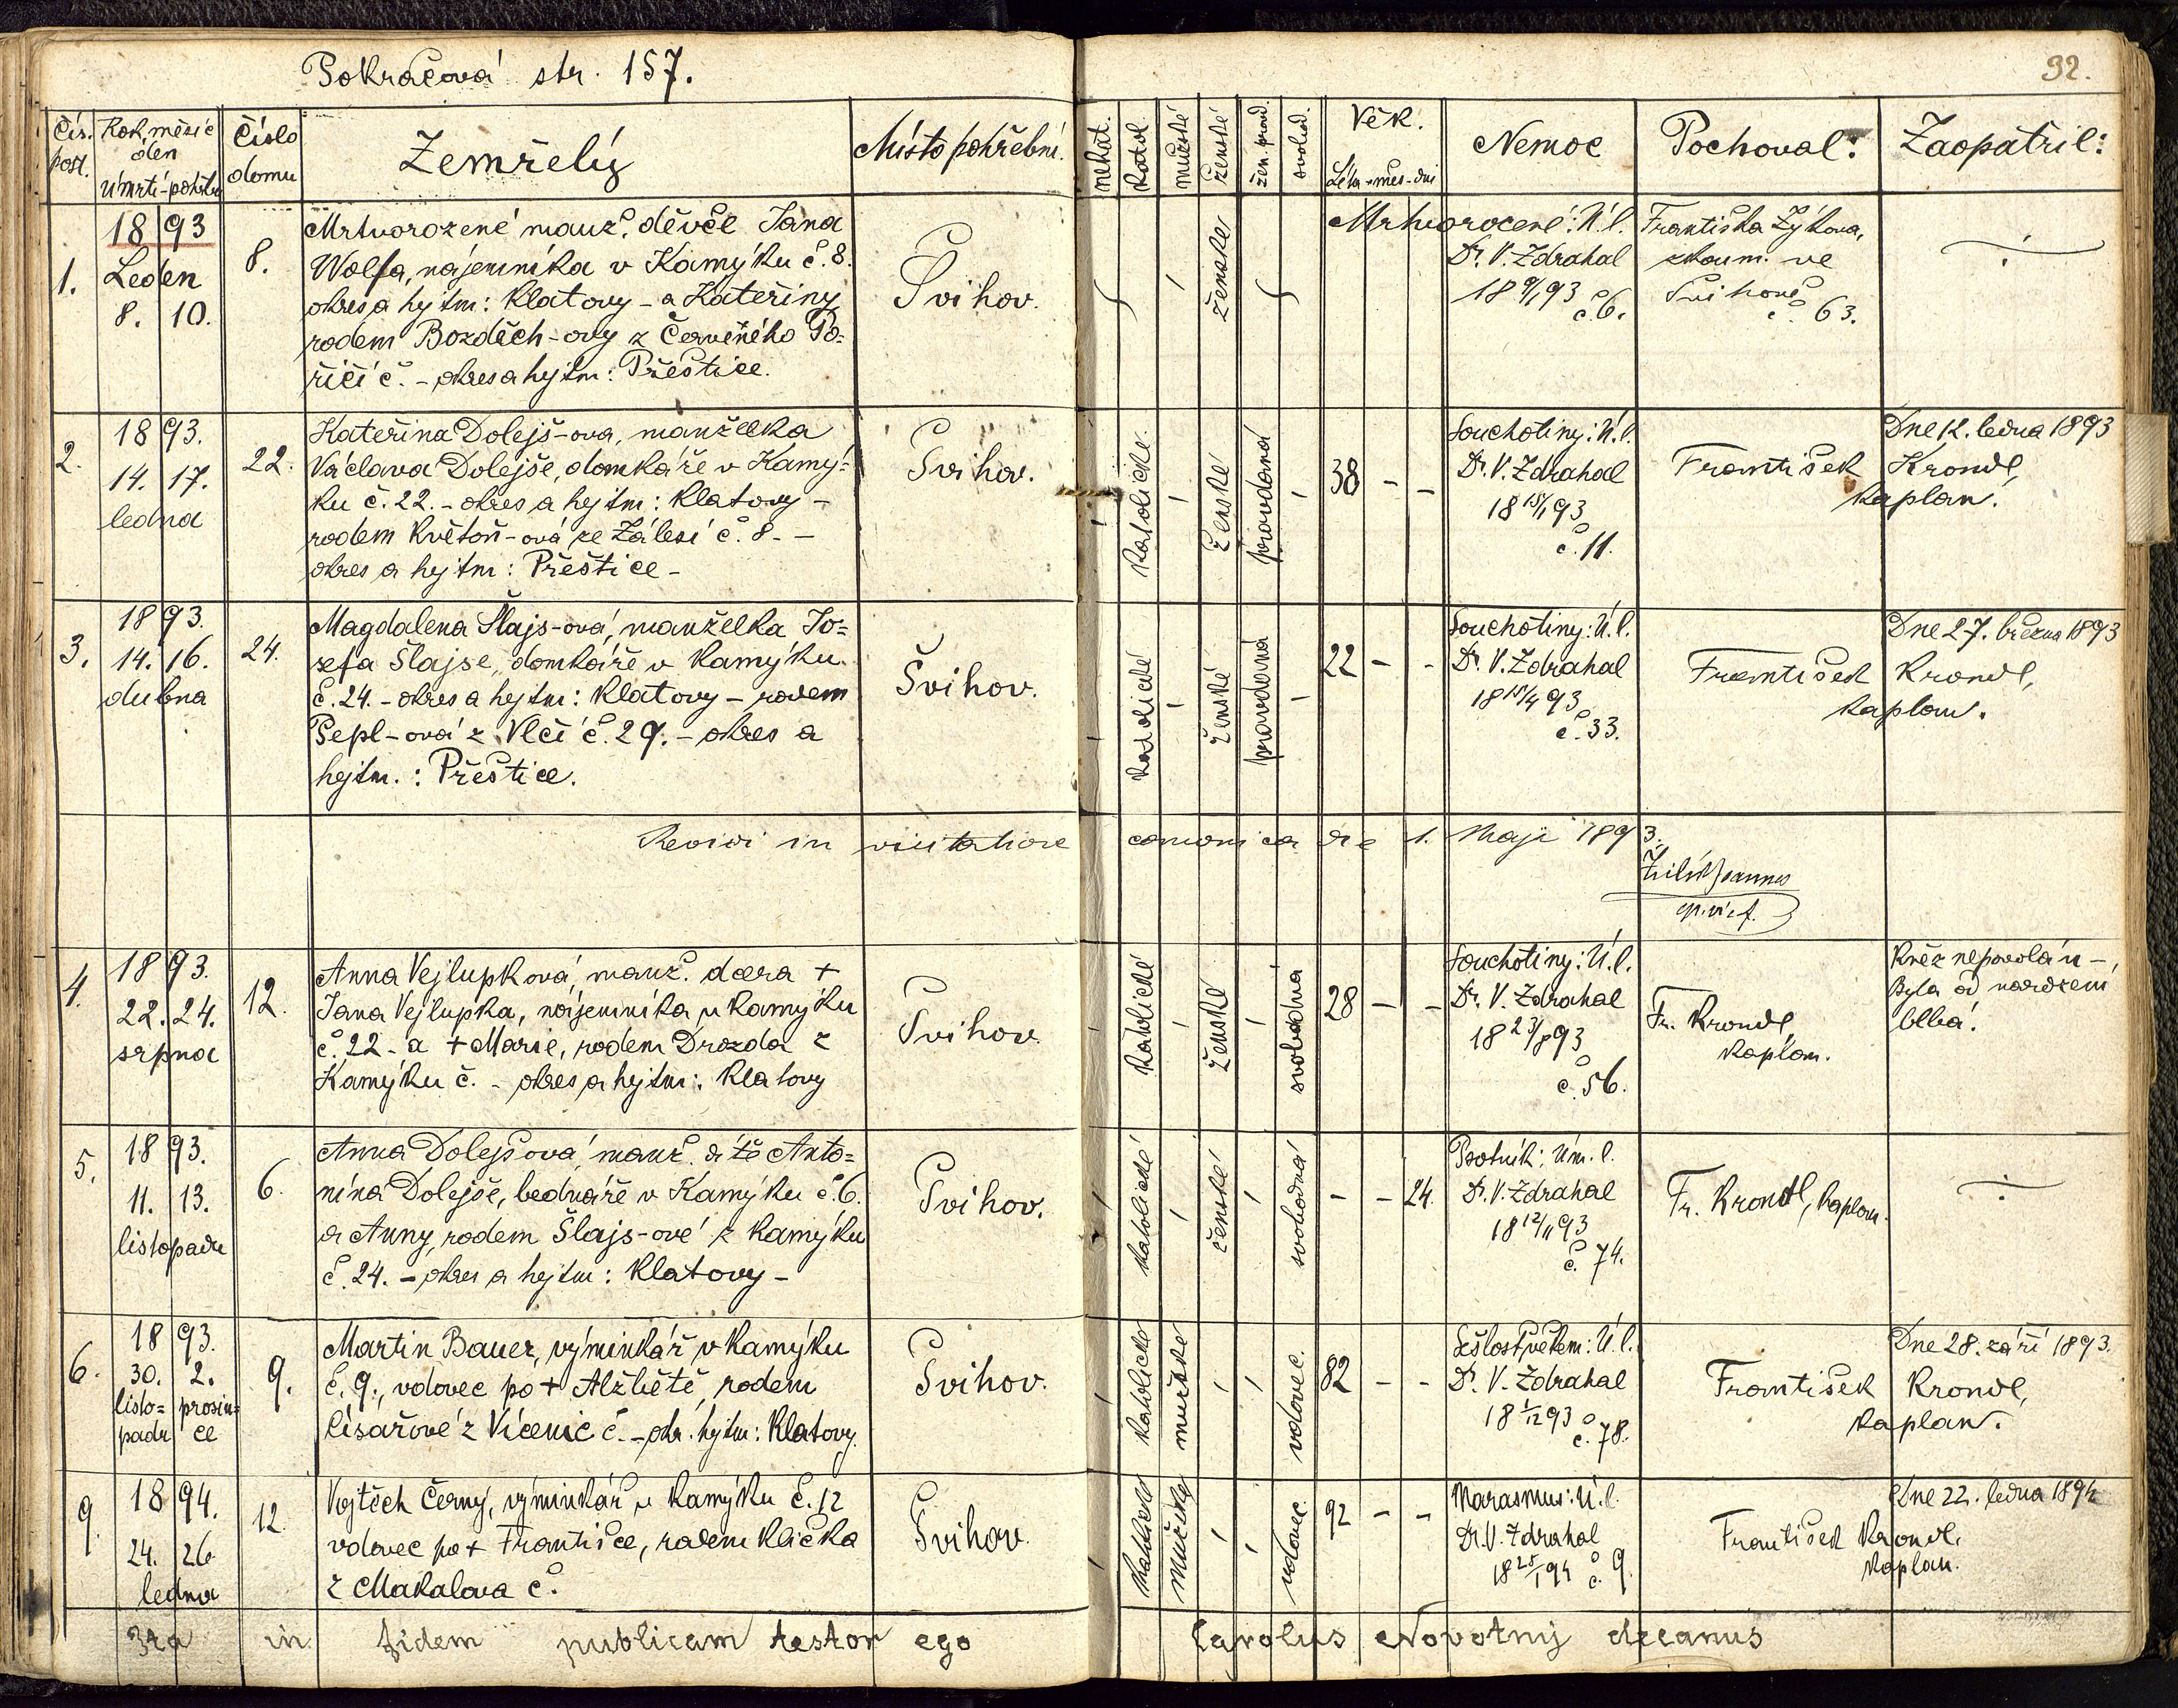 Pokračová str. 157.
92.
Čís. post.
Rok, měsíc den úmrtí - pohřbu
Číslo domu
Zemřelý
Místo pohřební.
nekat.
katol.
mužské
ženské
žen. provd.
svobod.
Věk.
Léta - měs - dni
Nemoc
Pochoval:
Zaopatřil:
1.
1893
Leden
8. 10.
8.
Mrtvorozené manž. děvče Jana
Wolfa, nájemníka v Kamýku č. 8.
okres a hejtm: Klatovy - a Kateřiny
rodem Bozděch-ovy z Červeného Po=
říčí č. - okres a hejtm: Přeštice.
Švihov.
ženské
Mrtvorozené: Ú.l.
Dr. V. Zdrahal
18 9/1 93
č. 6.
Františka Zýkova,
zkoum. ve
Švihově
č. 63.
2.
1893.
14. 17.
ledna
22.
Kateřina Dolejš-ova, manželka
Václava Dolejše, domkáře v Kamý=
ku č. 22. - okres a hejtm: Klatovy -
rodem Květoň-ová ze Zálesí č. 8. -
okres a hejtm: Přeštice -
Švihov.
katolické
ženské
provdaná
38 - -
Souchotiny: Ú.l.
Dr. V. Zdrahal
18 15/1 93
č. 11.
Dne 12. ledna 1893
František Krondl,
kaplan.
3.
1893.
14. 16.
dubna
24.
Magdalena Šlajs-ová, manželka Jo=
sefa Šlajse, domkáře v Kamýku
č. 24. - okres a hejtm: Klatovy - rodem
Pepl-ová z Vlčí č. 29. - okres a
hejtm.: Přeštice.
Švihov.
katolické
ženské
provdaná
22 - -
Souchotiny: Ú.l.
Dr. V. Zdrahal
18 15/4 93
č. 33.
Dne 27. března 1893
František Krondl,
kaplan.
Revidi in visitatione canonica die 1. Maji 1893.
Joannes
4.
1893.
22. 24.
srpna
12.
Anna Vejlupková, manž. dcera +
Jana Vejlupka, nájemníka v Kamýku
č. 22 - a + Marie, rodem Drozda z
Kamýku č. - okres a hejtm: Klatovy
Švihov
katolické
ženské
svobodná
28 - -
Souchotiny: Ú.l.
Dr. V. Zdrahal
18 23/8 93
č. 56.
Fr. Krondl,
kaplan.
Kněz nepovolán -
Byla od narození
blbá.
5.
1893.
11. 13.
listopadu
6.
Anna Dolejšová, manž. dítě Anto=
nína Dolejše, bednáře v Kamýku č. 6.
a Anny, rodem Šlajs-ové z Kamýku
č. 24. - okres a hejtm: Klatovy -
Švihov.
katolické
ženské
svobodná
- - 24.
Psotník: Úm. l.
Dr. V. Zdrahal
18 12/11 93
č. 74.
Fr. Krondl, kaplan.
6.
1893.
30. 2.
listo= prosin=
padu ce
9.
Martin Bauer, výminkář v Kamýku
č. 9., vdovec po + Alžbětě, rodem
Císařové z Vícenic č. - okr. hejtm: Klatovy.
Švihov.
katolické
mužské
vdovec.
82 - -
Sešlost věkem: Ú.l.
Dr. V. Zdrahal
18 1/12 93
č. 78.
Dne 28. září 1893.
František Krondl,
kaplan.
9.
1894.
24. 26
ledna
12
Vojtěch Černý, výminkář v Kamýku č. 12
vdovec po + Františce, rodem Klička
z Makalova č.
Švihov.
katolické
mužské
vdovec
92 - -
Marasmus: Ú.l.
Dr. V. Zdrahal
18 25/1 94 č. 9.
Dne 22. ledna 1894
František Krondl,
kaplan.
Ita in fidem publicam testor ego Carolus Novotný decanus